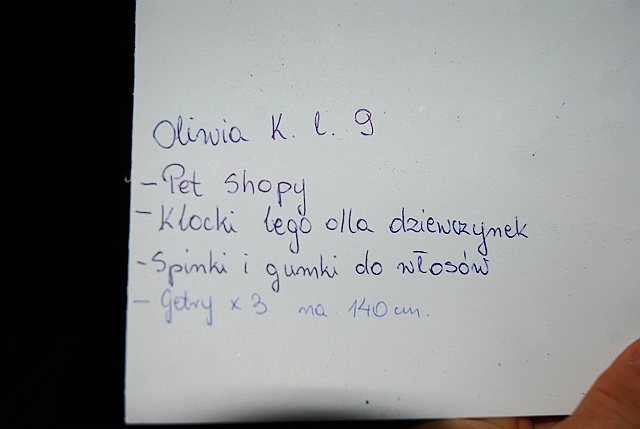 Oliwia K. l. 9
- Pet Shopy
- Klocki lego dla dziewczynek
- Spinki i gumki do włosów
- Getry x 3 na 140 cm.